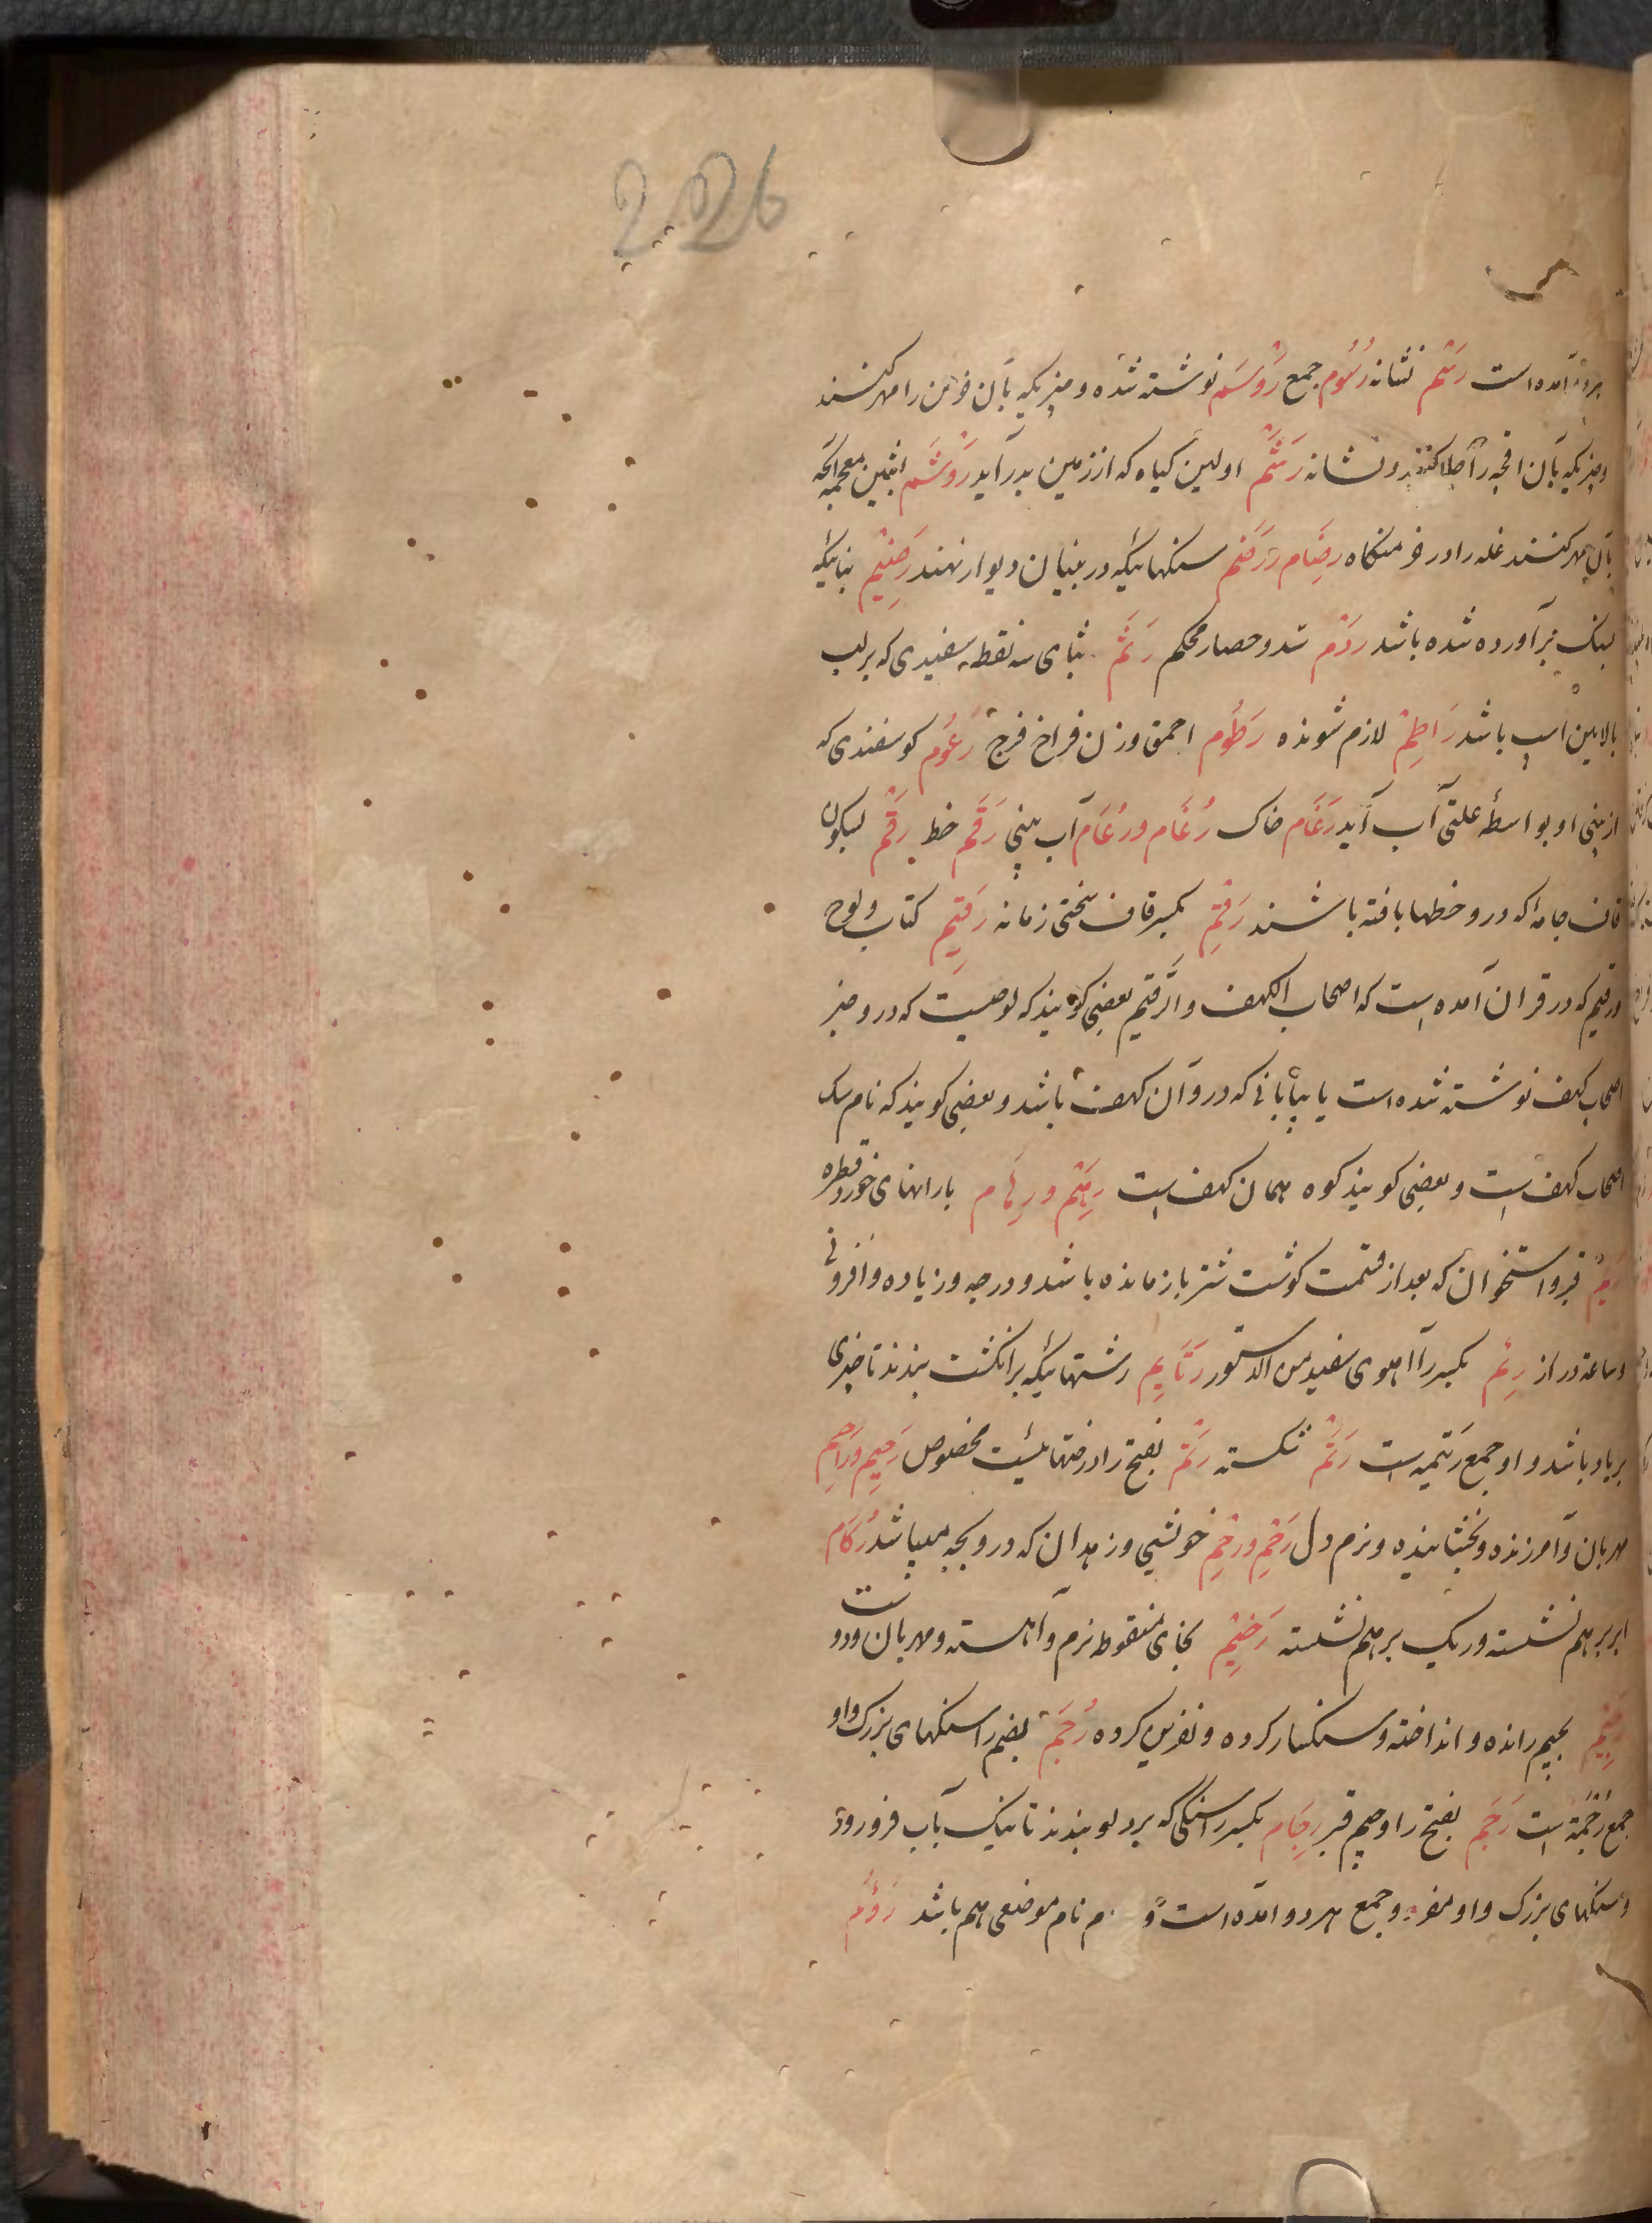 2026
هر دو آمده است رَسْم نشانه رُسُوم جمع رَوْسَم نوشته شده و چیزیکه بآن خرمن را مهر کنند
و چیزیکه بآن اقچه را جلا کنند و نشانه رَشَم اولین کیاه که از زمین بدر آید رَوْشَم بشین معجمه آنچه
بآن مهر کنند غله را در خرمنکاه رِضَام و رَضَم سنکهائیکه در بنیان دیوار نهند رَضِیْم بنائیکه
بسنک برآورده شده باشد رَدْم سد و حصار محکم رَثَم بثای سه نقطه سفیدی که بر لب
بالایین اسپ باشد رَاطِمْ لازم شونده رَطُوم احمق و زن فراخ فرج رَعُوم کوسفندی که
از بینی او بواسطه علتی آب آید رَغَام خاک رُغَام و رُعَام آب بینی رَقَم خط رَقْم بسکون
قاف جامه که درو خطها بافته باشند رَقِم بکسر قاف سختی زمانه رَقِیم کتاب و لوح
و رقیم که در قرآن آمده است که اصحاب الکهف و الرّقیم بعضی کویند که لوحیست که درو خبر
اصحاب کهف نوشته شده است یا بیابانی که درو آن کهف باشد و بعضی کویند که نام سک
اصحاب کهف است و بعضی کویند کوه همان کهف است رِهَم و رِهَام بارانهای خورد قطره
رَیْم قبر و استخوان که بعد از قسمت کوشت شتر بازمانده باشد و درجه و زیاده و افزونی
و ساعة دراز رِئم بکسر را آهوی سفید من الدستور رَتَایِم رشتهائیکه بر انکشت بندند تا چیزی
بر یاد باشد و او جمع رَتیمه است رَتْم شکسته رَتَم بفتح را درختهائیست مخصوص رَحِیم و رَاحِم
مهربان و آمرزنده و بخشاینده و نرم دل رَحِم و رِحْم خویشی و زهدان که درو بچه میباشد رُکَام
ابر بر هم نشسته و ریک بر هم نشسته رَخِیْم بخای منقوط نرم و آهسته و مهربان و دوست
رَجِیْم بجیم رانده و انداخته و سنکسار کرده و نفرین کرده رُجَم بضم را سنکهای بزرک و او
جمع رُجْمَة است رَجَم بفتح را و جیم قبر رِجَام بکسر را سنکی که بر دلو بندند تا نیک بآب فرو رود
و سنکهای بزرک و او مفرد و جمع هر دو آمده است و نام موضعی هم باشد رَؤُم